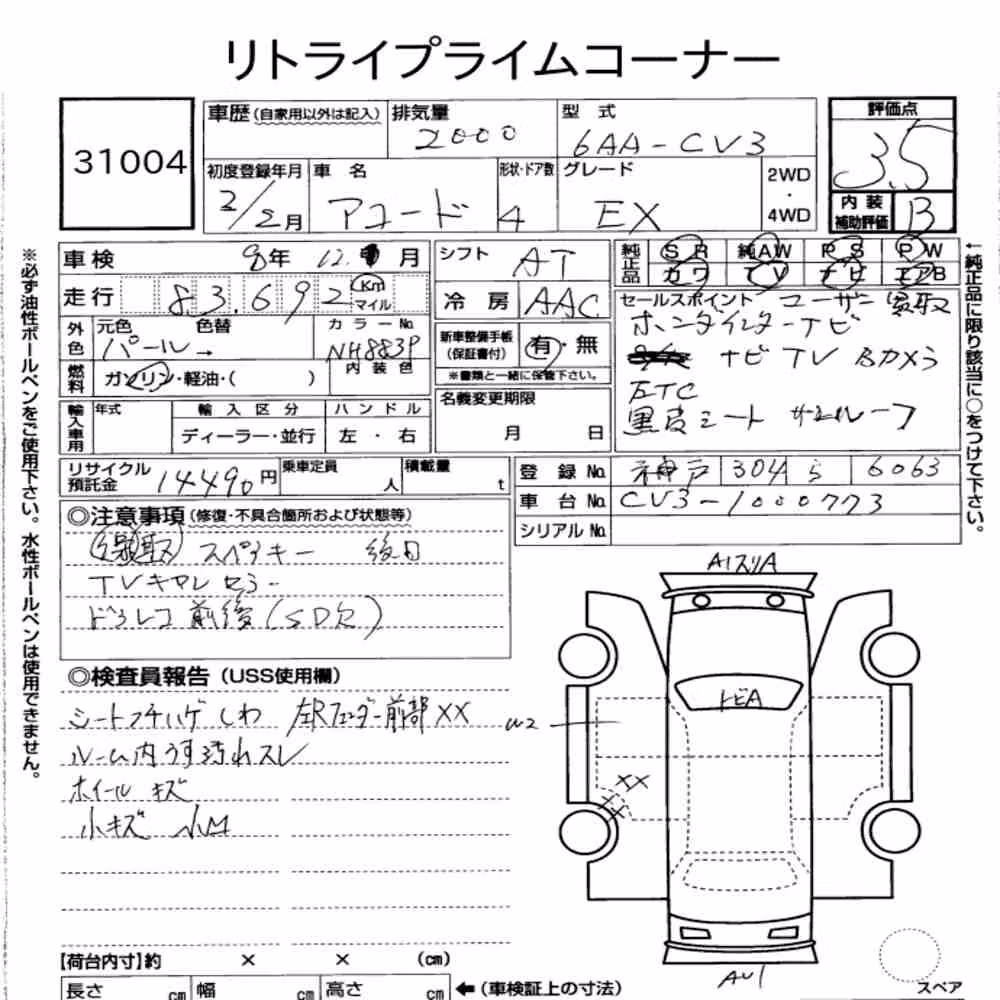 リトライプライムコーナー
31004
車歴(自家用以外は記入)
排気量
2000
型式
6AA-CV3
評価点
3.5
初度登録年月
2/2月
車名
アコード
形状・ドア数
4
グレード
EX
2WD
・
4WD
内装
補助評価
B
車検
8年 12 月
シフト
AT
純正品
SR
純AW
PS
PW
カワ
TV
ナビ
エアB
走行
83.692
Km
マイル
冷房
AAC
セールスポイント ユーザー買取
ホンダインターナビ
ナビ TV Bカメラ
ETC
黒皮シート サンルーフ
外色
元色
色替
パール→
カラーNo.
NH883P
内装色
新車整備手帳
(保証書付)
有・無
※書類と一緒に保管下さい。
燃料
ガソリン・軽油・( )
名義変更期限
月 日
輸入車用
年式
輸入区分
ハンドル
ディーラー・並行
左・右
リサイクル
預託金
14490円
乗車定員
人
積載量
t
登録No.
神戸 304 ら 6063
車台No.
CV3-1000773
シリアルNo.
◎注意事項(修復・不具合箇所および状態等)
買取 スペアキー 後日
TVキャンセラー
ドラレコ前後(SD欠)
◎検査員報告(USS使用欄)
シートフチハゲ しわ 左Rフェンダー前部XX
ルーム内うす汚れスレ
ホイールキズ
小キズ 小凹
A1スリA
トビA
W2
XX
XX
AU1
スペア
【荷台内寸】約 × × (cm)
長さ cm
幅 cm
高さ cm
←(車検証上の寸法)
※必ず油性ボールペンをご使用下さい。水性ボールペンは使用できません。
←純正品に限り該当に○をつけて下さい。